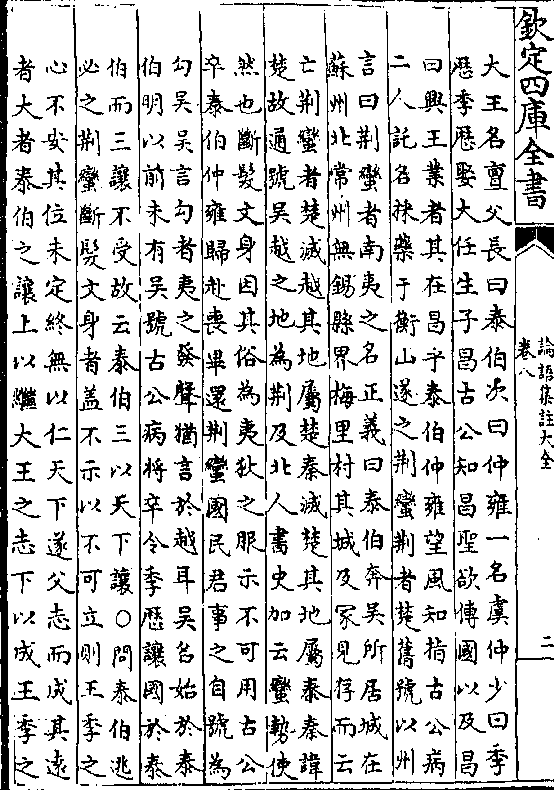 欽定四庫全書
論語集註大全
卷八
二
大王名亶父長曰泰伯次曰仲雍一名虞仲少曰季
歴季歴娶大任生子昌古公知昌聖欲傳國以及昌
曰興王業者其在昌乎泰伯仲雍望風知指古公病
二人託名採藥于衡山遂之荆蠻荆者楚舊號以州
言曰荆蠻者南夷之名正義曰泰伯奔吳所居城在
蘇州北常州無錫縣界梅里村其城及冢見存而云
亡荆蠻者楚滅越其地屬楚秦滅楚其地屬秦秦諱
楚故通號吳越之地為荆及北人書史加云蠻勢使
然也斷髮文身因其俗為夷狄之服示不可用古公
卒泰伯仲雍歸赴喪畢還荆蠻國民君事之自號為
勾吳吳言勾者夷之發聲猶言於越耳吳名始於泰
伯明以前未有吳號古公病将卒令季歴讓國於泰
伯而三讓不受故云泰伯三以天下讓○問泰伯逃
必之荆蠻斷髮文身者盖不示以不可立則王季之
心不安其位未定終無以仁天下遂父志而成其遠
者大者泰伯之讓上以繼大王之志下以成王季之